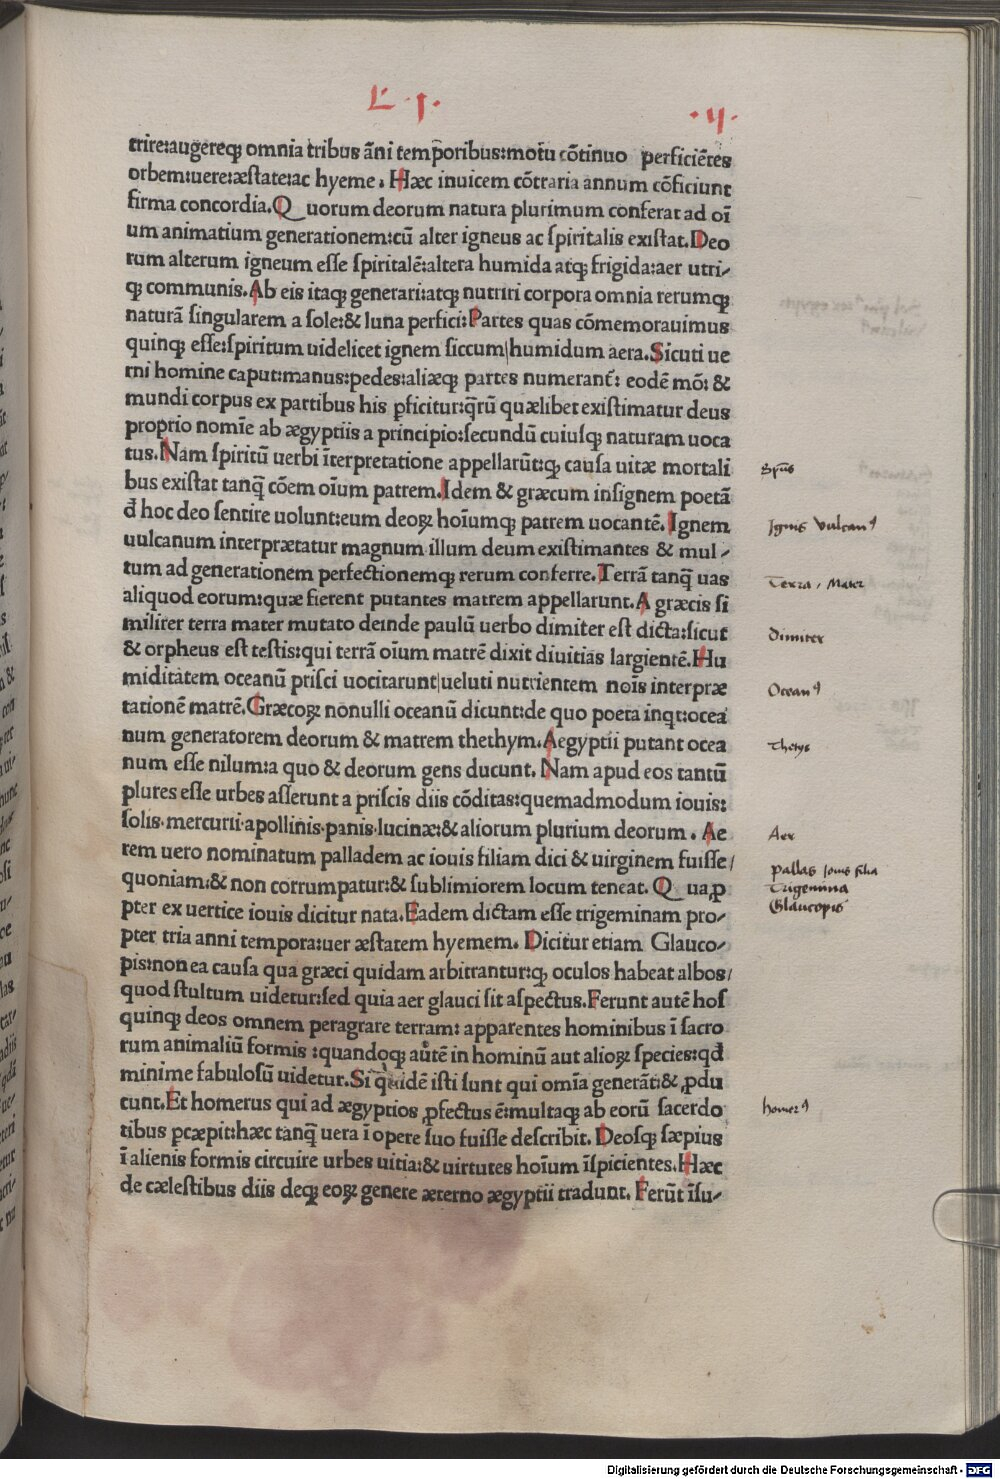 L· .I.
.II.
trire:augereq; omnia tribus āni temp̄oribus:motu cōtinuo perficiētes
orbem:uere:æstate:ac hyeme. Hæc inuicem cōtraria annum cōficiunt
firma concordia. Quorum deorum natura plurimum conferat ad oī
um animatium generationem:cū alter igneus ac ſpiritalis exiſtat. Deo
rum alterum igneum eſſe ſpiritalē:altera humida atq; frigida:aer utri-
q; communis. Ab eis itaq; generari:atq; nutriri corpora omnia rerumq;
naturā ſingularem a ſole:& luna perfici: Partes quas cōmemorauimus
quinq; eſſe:ſpiritum uidelicet ignem ſiccum|humidum aera. Sicuti ue
rni homine caput:manus:pedes:aliæq; partes numerant᷑: eodē mō: &
mundi corpus ex partibus his ꝑficitur:q̄rū quælibet exiſtimatur deus
proprio nomīe ab ægyptiis a principio:ſecundū cuiuſq; naturam uoca
tus. Nam ſpiritū uerbi īterpretatione appellarūt:q; cauſa uitæ mortali
bus exiſtat tanq̄ cōem oīum patrem. Idem & græcum inſignem poetā
đ hoc deo ſentire uolunt:eum deoꝝ hoīumq; patrem uocantē. Ignem
uulcanum interprætatur magnum illum deum exiſtimantes & mul-
tum ad generationem perfectionemq; rerum conferre. Terrā tanq̄ uas
aliquod eorum:quæ fierent putantes matrem appellarunt. A græcis ſi
militer terra mater mutato deinde paulū uerbo dimiter eſt dicta:ſicut
& orpheus eſt teſtis:qui terrā oīum matrē dixit diuitias largientē. Hu
miditatem oceanū priſci uocitarunt|ueluti nutrientem noīs interpræ
tationē matrē. Græcoꝝ nonulli oceanū dicunt:de quo poeta inqt:ocea
num generatorem deorum & matrem thethym. Aegyptii putant ocea
num eſſe nilum:a quo & deorum gens ducunt. Nam apud eos tantū
plures eſſe urbes aſſerunt a priſcis diis cōditas:quemadmodum iouis:
ſolis·mercurii·apollinis·panis·lucinæ:& aliorum plurium deorum. Ae
rem uero nominatum palladem ac iouis filiam dici & uirginem fuiſſe/
quoniam:& non corrumpatur:& ſublimiorem locum teneat. Qua,ꝓ
pter ex uertice iouis dicitur nata. Eadem dictam eſſe trigeminam pro-
pter tria anni tempora:uer æſtatem hyemem. Dicitur etiam Glauco-
pis:non ea cauſa qua græci quidam arbitrantur:q; oculos habeat albos/
quod ſtultum uidetur:ſed quia aer glauci ſit aſpectus. Ferunt autē hoſ
quinq; deos omnem peragrare terram: apparentes hominibus ī ſacro
rum animaliū formis :quandoq; autē in hominū aut alioꝝ ſpecies:qđ
minime fabuloſū uidetur. Si q̇uidē iſti ſunt qui omīa generāt:& ꝓdu
cunt. Et homerus qui ad ægyptios ꝓfectus ē:multaq; ab eorū ſacerdo
tibus ꝑcæpit:hæc tanq̄ uera ī opere ſuo fuiſſe deſcribit. Deoſq; ſæpius
ī alienis formis circuire urbes uitia:& uirtutes hoīum īſpicientes. Hæc
de cæleſtibus diis deq; eoꝝ genere æterno ægyptii tradunt. Ferūt īſu-
Sp̄us
Ignis Vulcanꝰ
Terra, Mater
Dimiter
Oceanꝰ
Thetys
Aer
Pallas Iouis filia
Trigemina
Glaucopis
homerꝰ
Digitalisierung gefördert durch die Deutsche Forschungsgemeinschaft - DFG